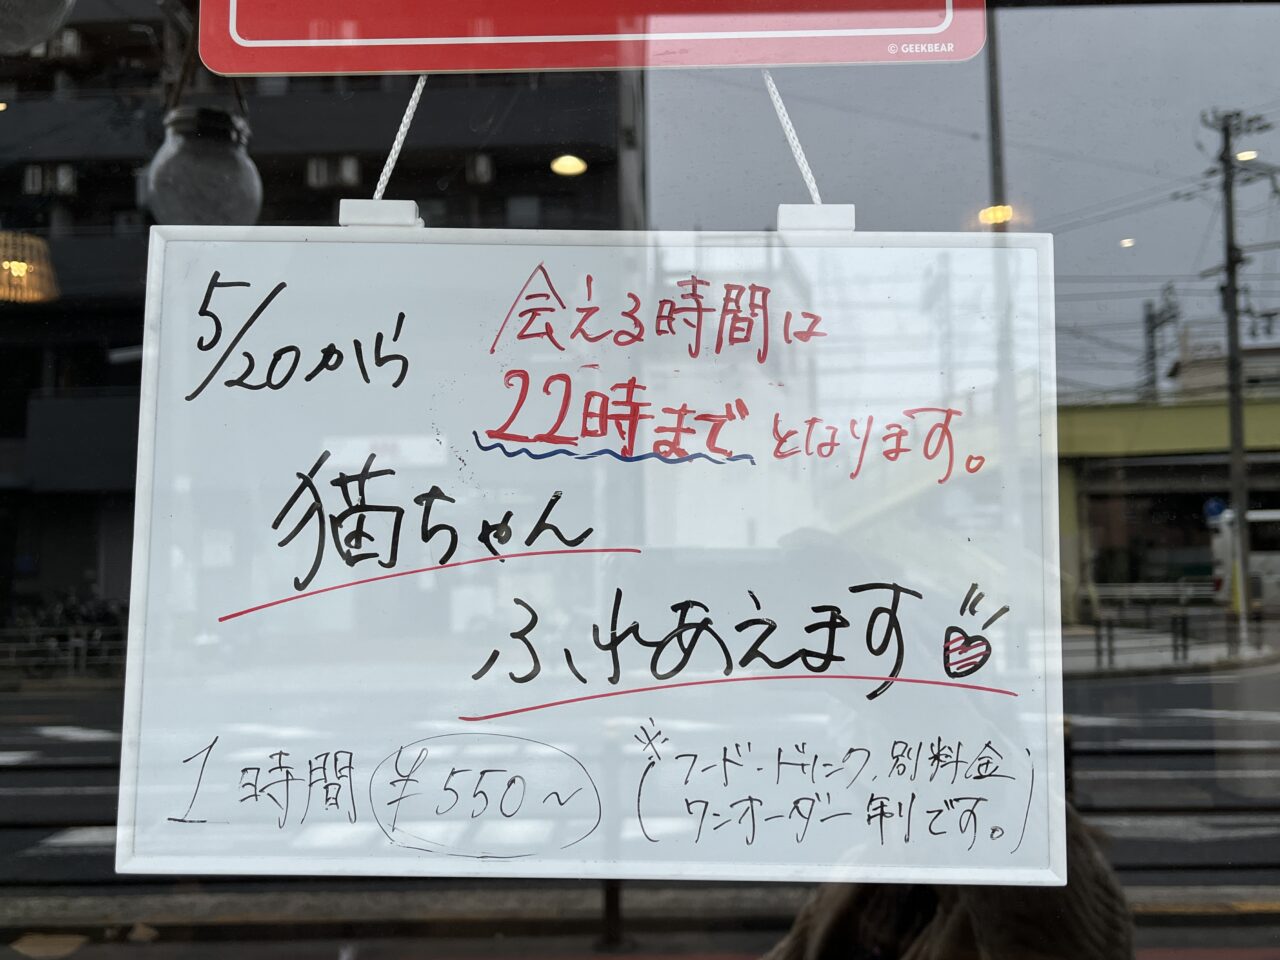 © GEEKBEAR
5/20から
会える時間は
22時まで となります。
猫ちゃん
ふれあえます
1時間 ¥550~
※(フード・ドリンク別料金
ワンオーダー制です。)